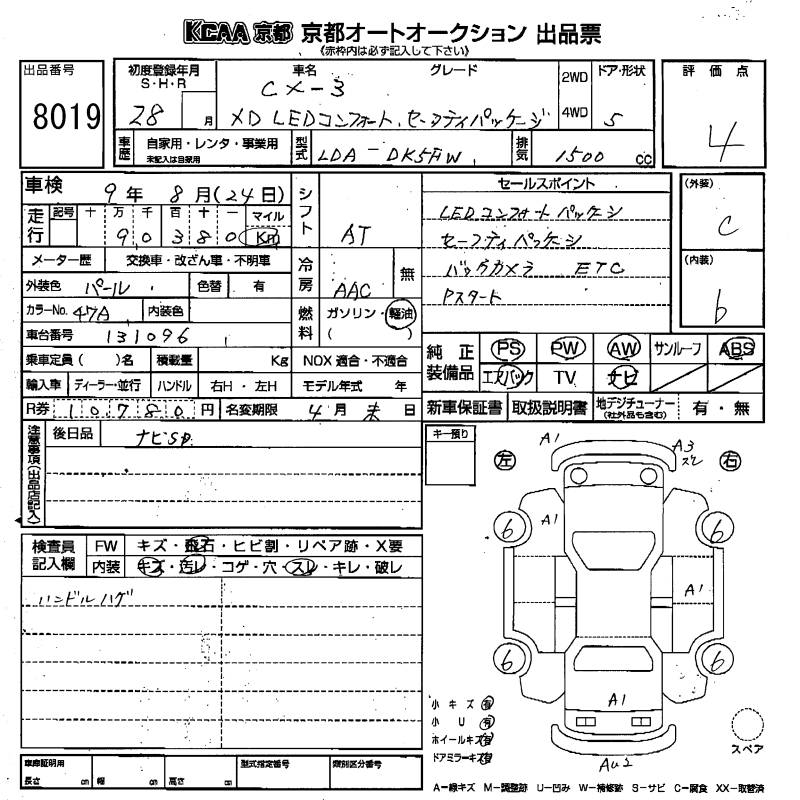 KCAA 京都 京都オートオークション 出品票
《赤枠内は必ず記入して下さい》
出品番号 8019
初度登録年月 S・H・R 28 月
車名 CX-3 グレード
XD LEDコンフォート、セーフティパッケージ
2WD 4WD
ドア・形状 5
評価点 4
車歴 自家用・レンタ・事業用 未記入は自家用
型式 LDA-DK5AW
排気 1500 cc
車検 9年 8月(24日)
走行 記号 十 万 千 百 十 一 マイル
90380 Km
メーター歴 交換車・改ざん車・不明車
外装色 パール 色替 有
カラーNo. 47A 内装色
車台番号 131096
乗車定員( )名 積載量 Kg
輸入車 ディーラー・並行 ハンドル 右H・左H
R券 10780円 名変期限 4月末日
シフト AT
冷房 AAC 無
燃料 ガソリン・軽油
( )
NOX適合・不適合
モデル年式 年
セールスポイント
LEDコンフォートパッケージ
セーフティパッケージ
バックカメラ ETC
Pスタート
(外装) C
(内装) b
純正装備品 PS PW AW サンルーフ ABS
エアバック TV ナビ
新車保証書 取扱説明書 地デジチューナー(社外品も含む) 有・無
注意事項(出品店記入) 後日品 ナビSD
キー預り
検査員記入欄
FW キズ・飛石・ヒビ割・リペア跡・X要
内装 キズ・汚レ・コゲ・穴・スレ・キレ・破レ
ハンドルハゲ
左 右
A1
A3 スレ
6 A1 6
A1
6 6
A1
AU2
小キズ 有
小U 有
ホイールキズ 有
ドアミラーキズ 有
スペア
車庫証明用 長さ cm 幅 cm 高さ cm
型式指定番号 類別区分番号
A-線キズ M-調整跡 U-凹み W-補修跡 S-サビ C-腐食 XX-取替済